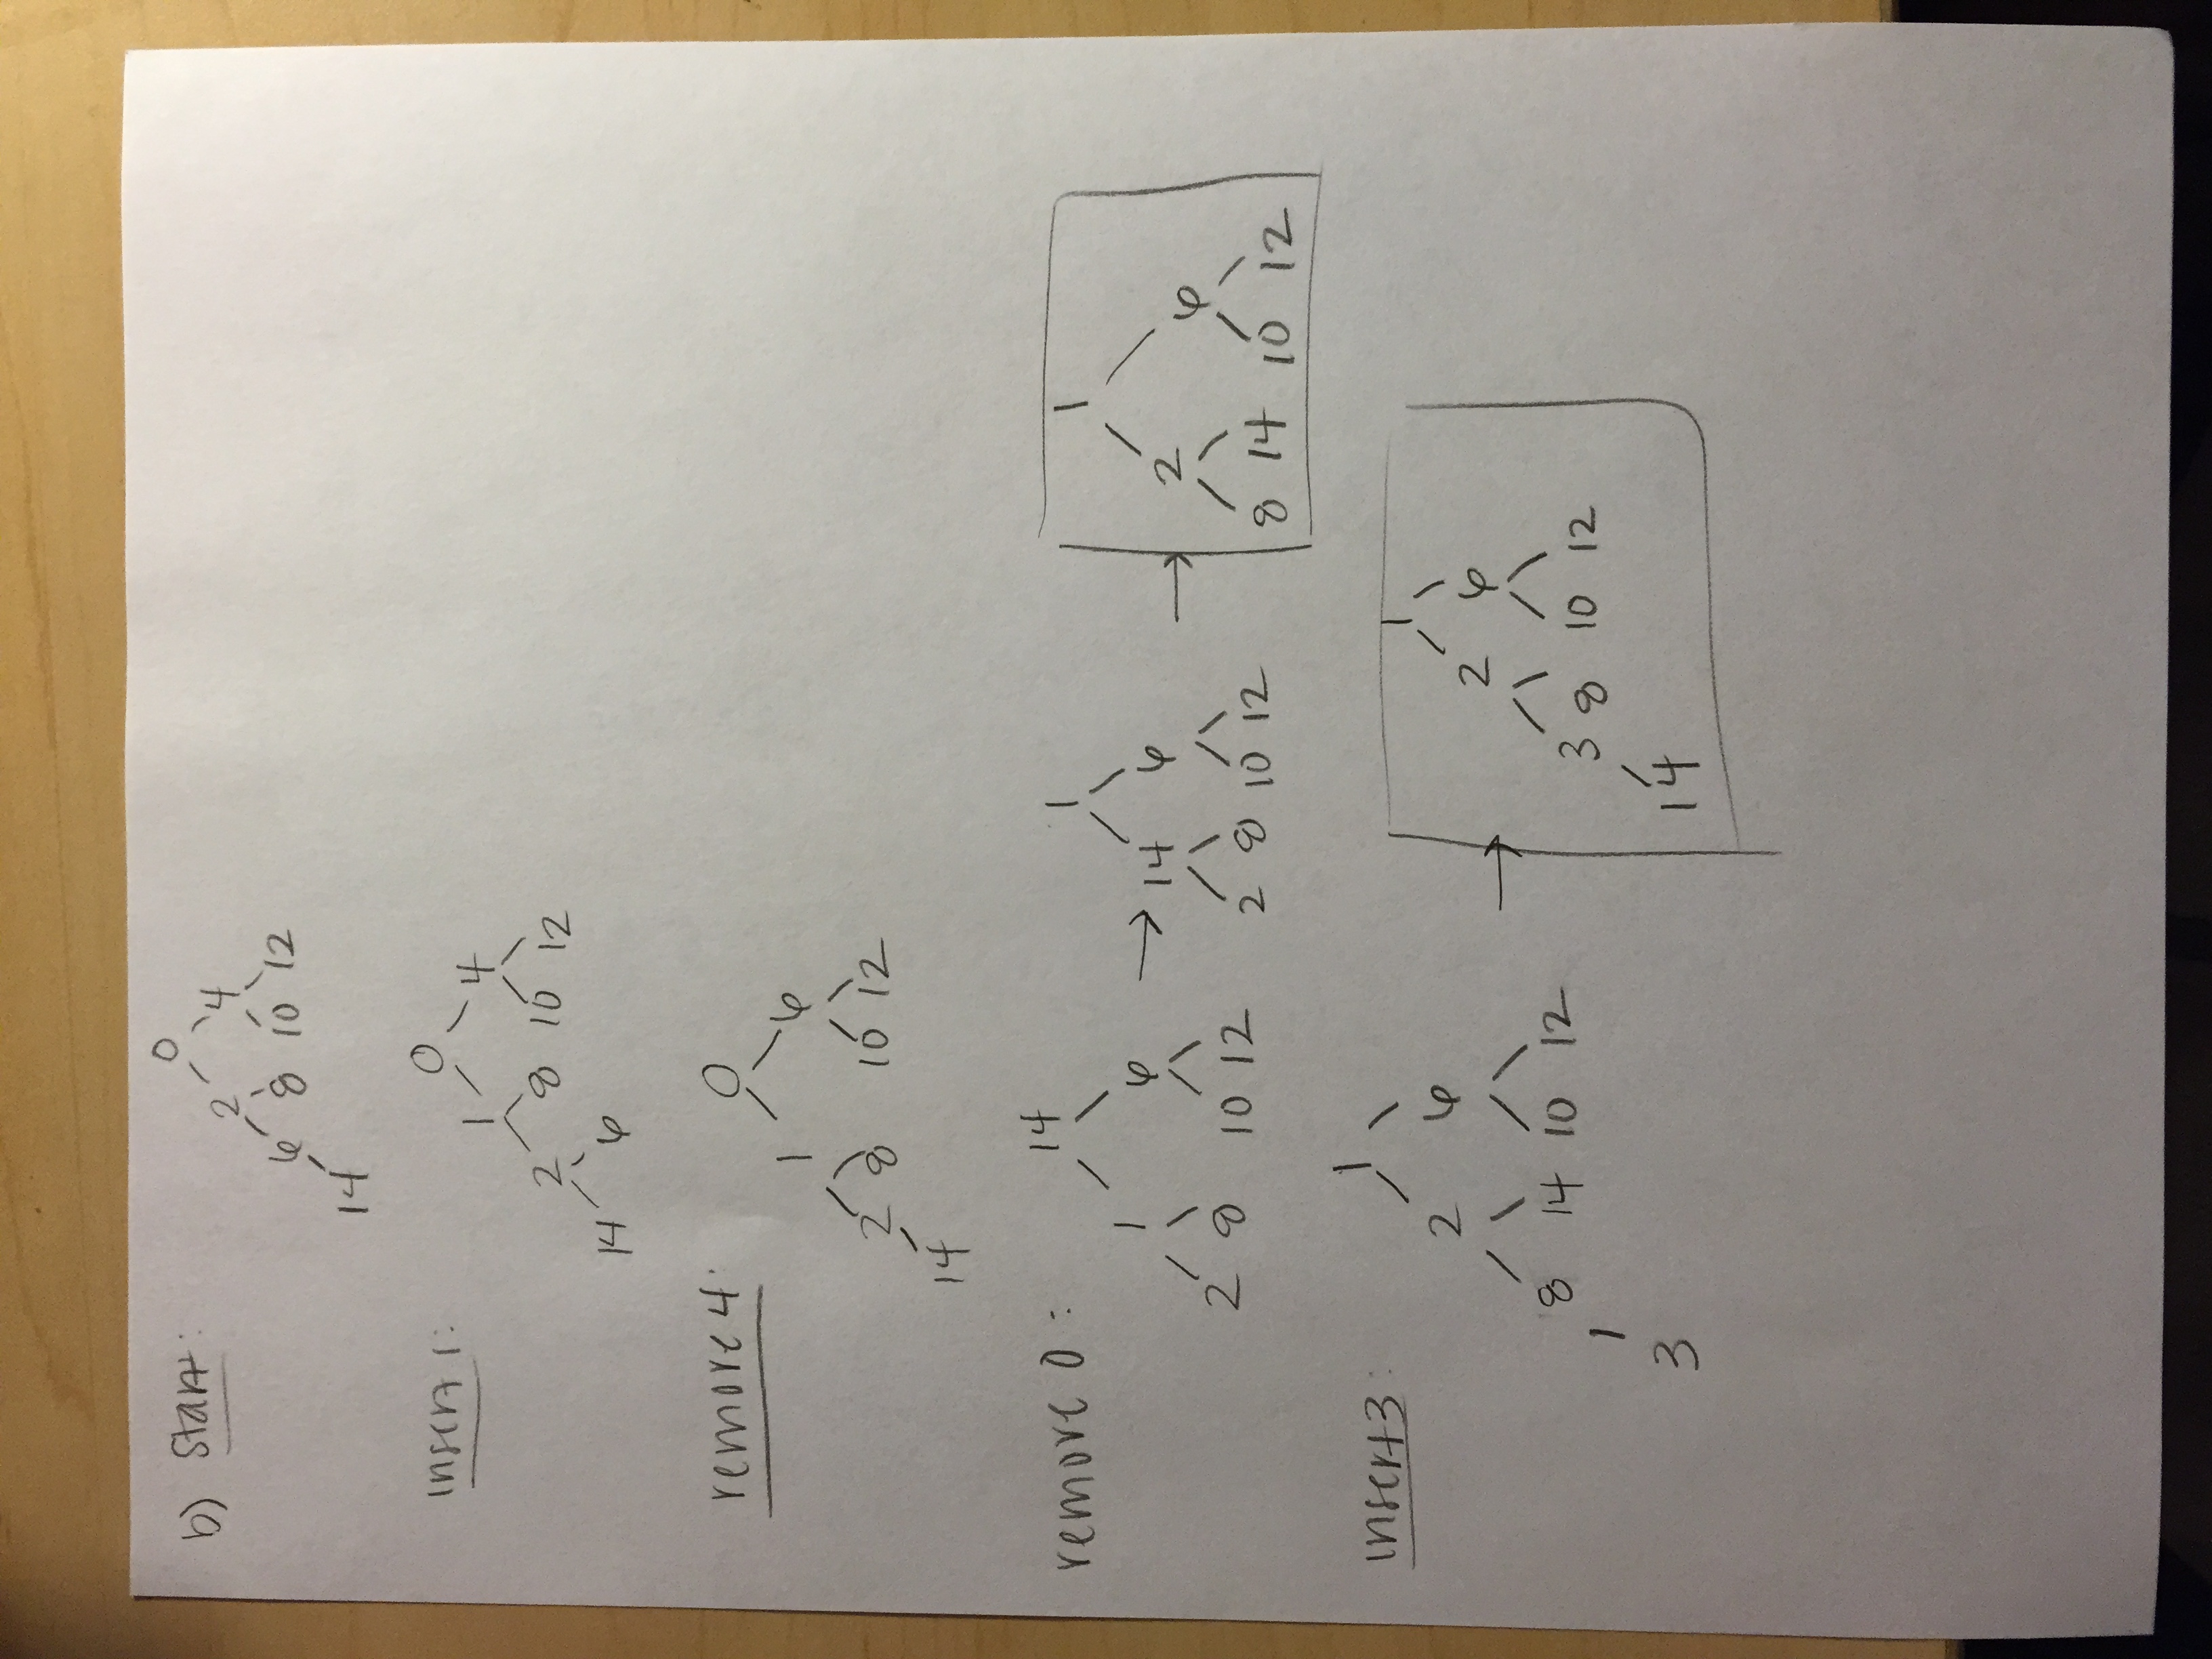 b) Start:
0
2 4
6 8 10 12
14
insert 1:
0
1 4
2 8 10 12
14 6
remove 4:
0
1 6
2 8 10 12
14
remove 0:
14
1 6
2 8 10 12
→
1
14 6
2 8 10 12
→
1
2 6
8 14 10 12
insert 3:
1
2 6
8 14 10 12
3
→
1
2 6
3 8 10 12
14